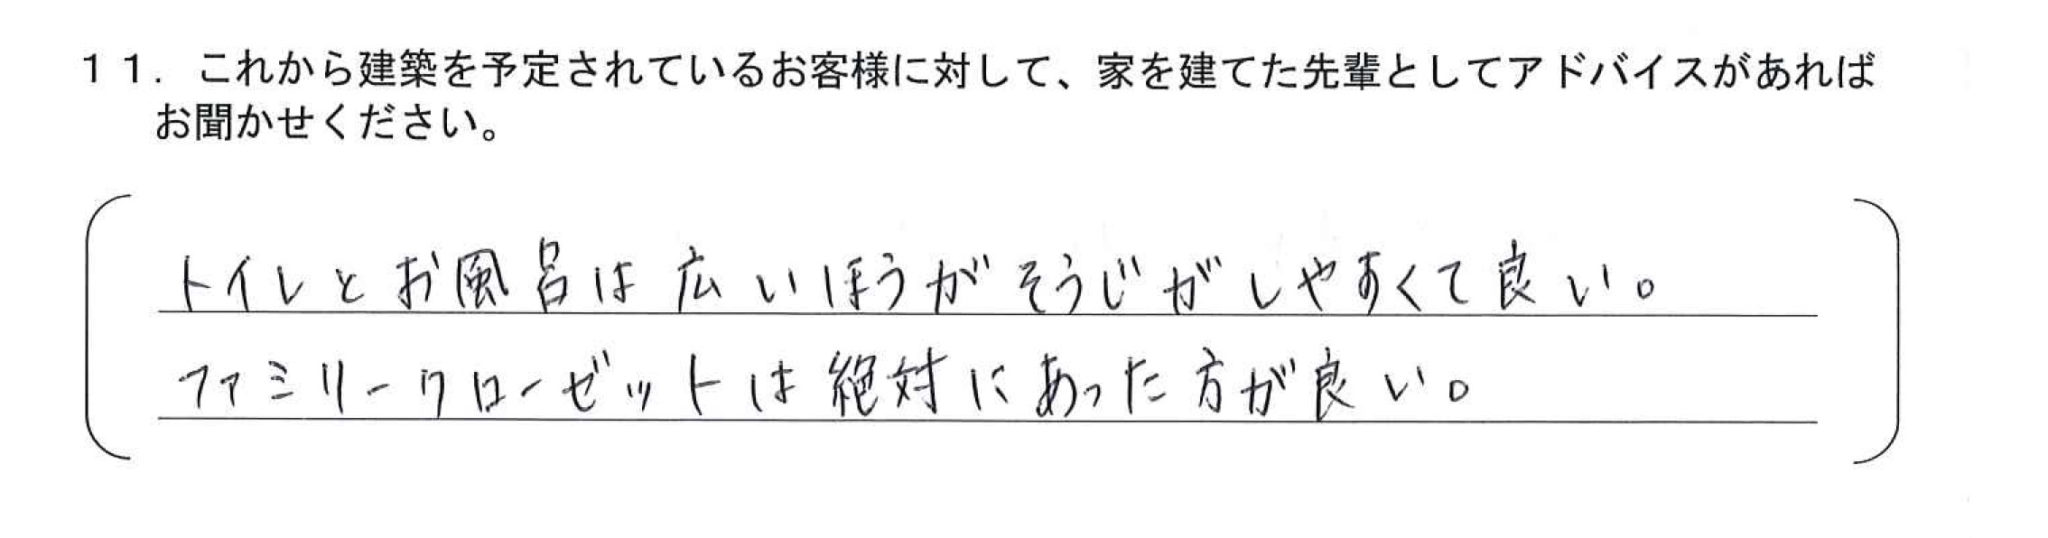 11．これから建築を予定されているお客様に対して、家を建てた先輩としてアドバイスがあれば
お聞かせください。
トイレとお風呂は広いほうがそうじがしやすくて良い。
ファミリークローゼットは絶対にあった方が良い。